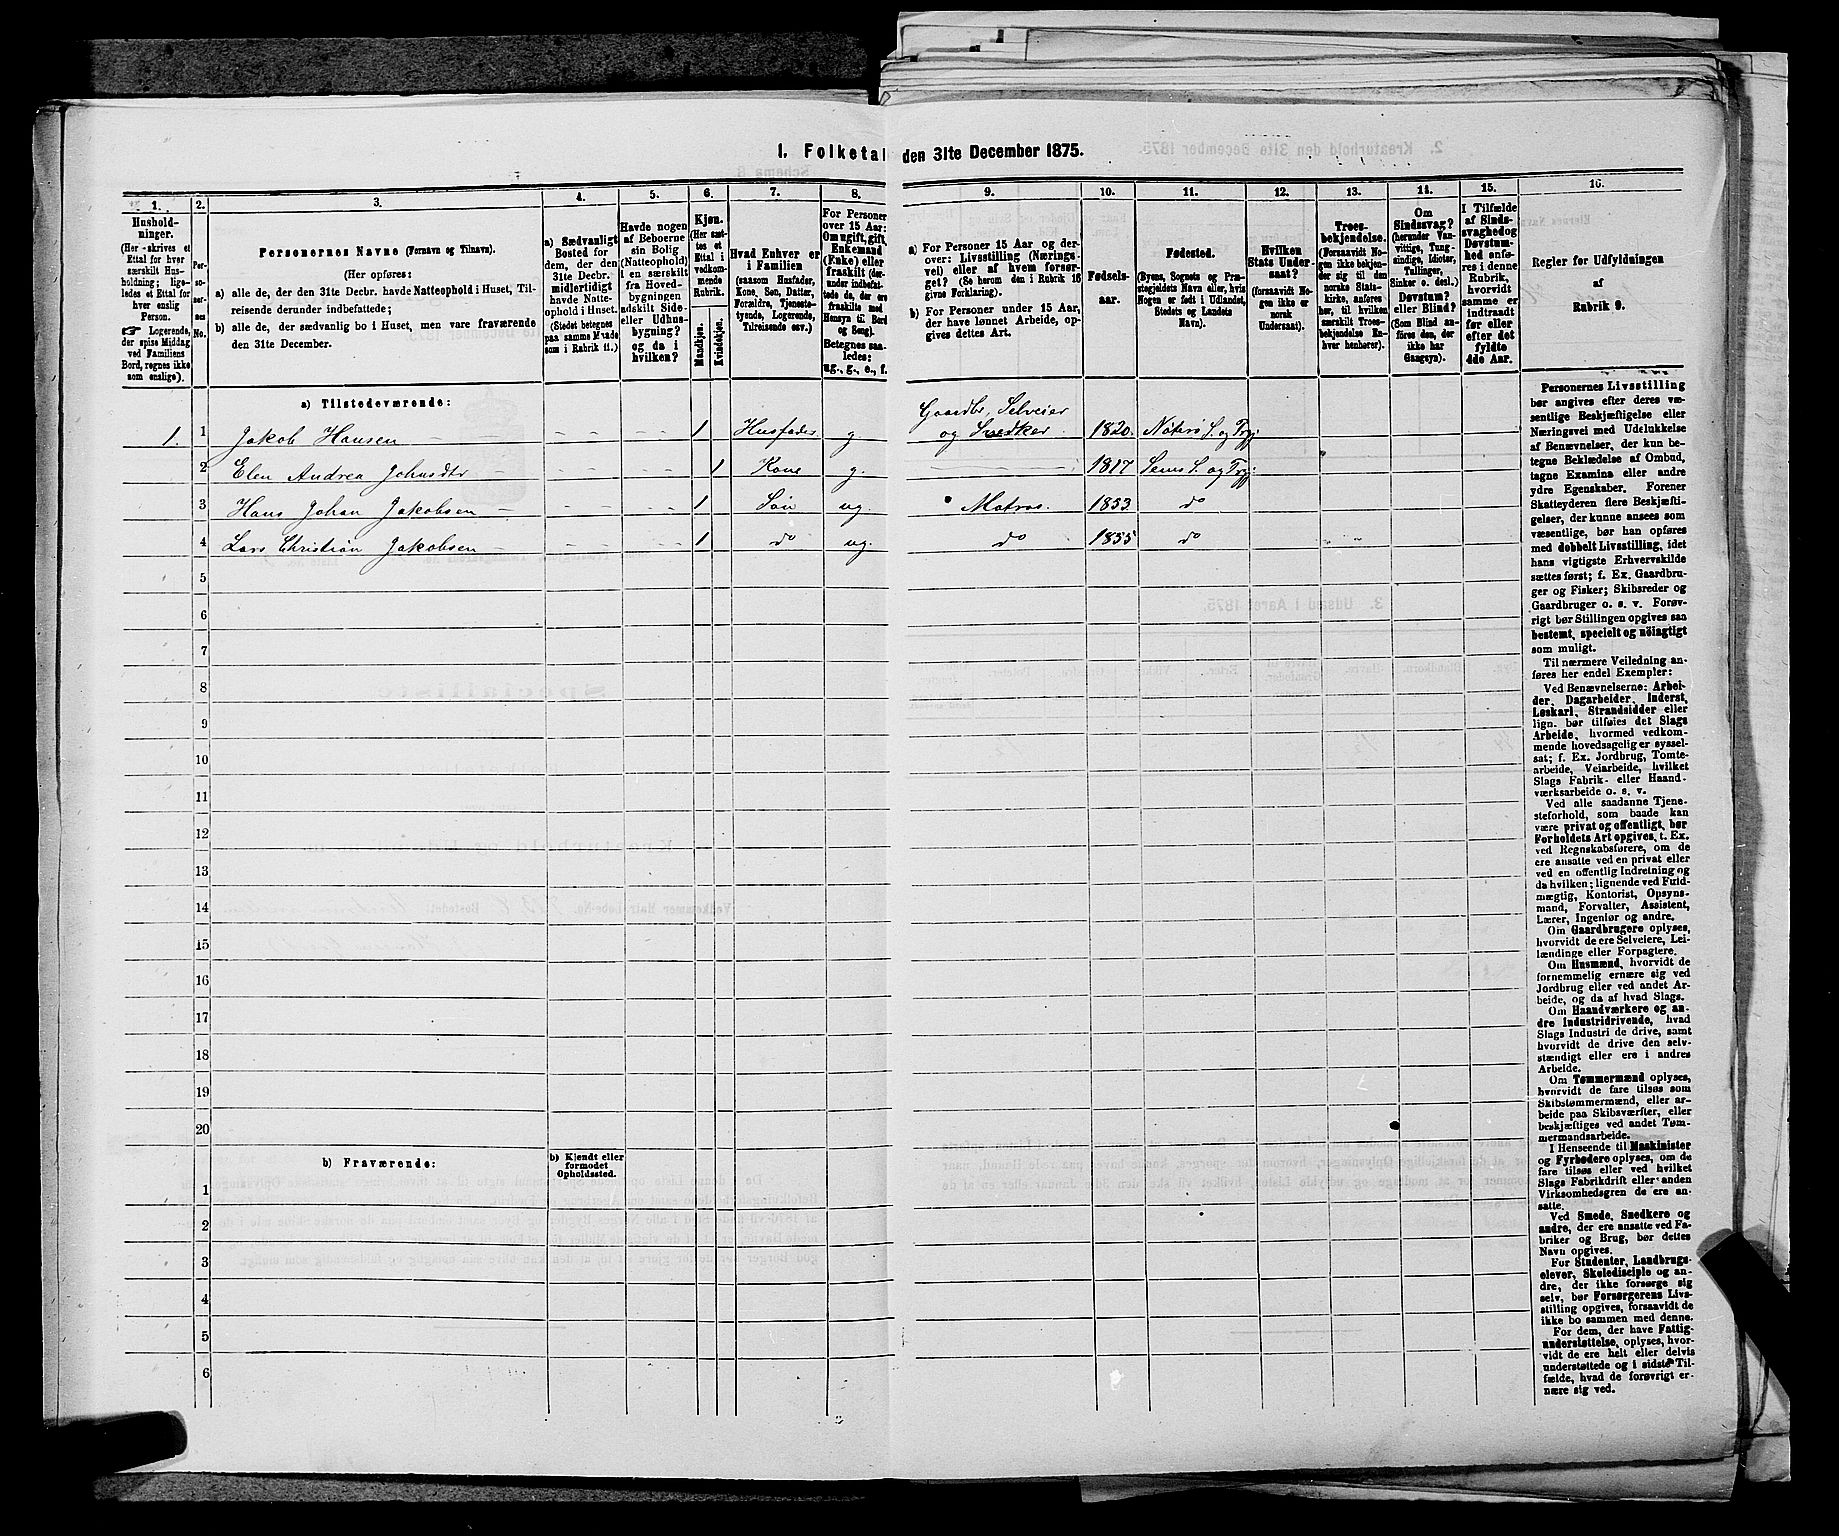 1. Folketal den 31te December 1875.
1.
Hushold-
ninger.
(Her skrives et
Ettal for hver
særskilt Hus-
holdning; lige-
ledes et Ettal for
hver enslig
Person.
☞ Logerende,
der spise Middag
ved Familiens
Bord, regnes ikke
som enslige).
2.
Per-
so-
ner-
nes
No.
3.
Personernes Navne (Fornavn og Tilnavn).
(Her opføres:
a) alle de, der den 31te Decbr. havde Natteophold i Huset, Til-
reisende derunder indbefattede;
b) alle de, der sædvanlig bo i Huset, men vare fraværende
den 31te December.
4.
a) Sædvanligt
Bosted for
dem, der den
31te Decbr.
midlertidigt
havde Natte-
ophold i Huset.
(Stedet betegnes
paa samme Maade
som i Rubrik 11.)
5.
Havde nogen
af Beboerne
sin Bolig
(Natteophold)
i en særskilt
fra Hoved-
bygningen
adskilt Side-
eller Udhus-
bygning?
og da i
hvilken?
6.
Kjøn.
(Her sæt-
tes et
Ettal i
vedkom-
mende
Rubrik.
Mandkjøn.
Kvindekjøn.
7.
Hvad Enhver er
i Familien
(saasom Husfader,
Kone, Søn, Datter,
Forældre, Tjeneste-
tyende, Logerende,
Tilreisende osv.)
8.
For Personer
over 15 Aar:
Om ugift, gift,
Enkemand
(Enke) eller
fraskilt (der-
under indbefat-
tede de, der ere
fraskilte med
Hensyn til Bord
og Seng).
Betegnes saa-
ledes:
ug., g., e., f.
9.
a) For Personer 15 Aar og der-
over: Livsstilling (Nærings-
vei) eller af hvem forsør-
get? (Se herom den i Rubrik 16
givne Forklaring).
b) For Personer under 15 Aar,
der have lønnet Arbeide, op-
gives dettes Art.
10.
Fødsels-
aar.
11.
Fødested.
(Byens, Sognets og Præ-
stegjeldets Navn eller, hvis
Nogen er født i Udlandet,
Stedets og Landets
Navn).
12.
Hvilken
Stats Under-
saat?
(forsaavidt No-
gen ikke er
norsk
Undersaat).
13.
Troes-
bekjendelse.
(Forsaavidt No-
gen ikke bekjen-
der sig til den
norske Stats-
kirke, anføres
her, til hvilken
særskilt Troes-
bekjendelse En-
hver henhører).
14.
Om
Sindssvag?
(herunder Van-
vittige, Tung-
sindige, Idioter,
Tullinger,
Sinker o. desl.)
Døvstum?
eller Blind?
(Som Blind an-
føres den, der
ikke har
Gangsyn).
15.
I Tilfælde
af Sinds-
svaghed og
Døvstum-
hed anfø-
res i denne
Rubrik,
hvorvidt
samme er
indtraadt
før eller
efter det
fyldte
4de Aar.
16.
Regler for Udfyldningen
af
Rubrik 9.
a) Tilstedeværende:
1. 1 Jakob Hansen 1 Husfader g Gaardbr, Selveier
og Snedker 1820. Nøterø S. og Prgj
2 Elen Andrea Johnsdtr 1 Kone g. 1817 Sems S. og Prgj.
3 Hans Johan Jakobsen 1 Søn ug. Matros 1853 do
4 Lars Christian Jakobsen 1 do ug. do 1855 do
5
6
7
8
9
10
11
12
13
14
15
16
17
18
19
20
b) Fraværende:
b) Kjendt eller
formodet
Opholdssted.
1
2
3
4
5
6
Personernes Livsstilling
bør angives efter deres væ-
sentlige Beskjæftigelse eller
Næringsvei med Udelukkelse
af Benævnelser, der kun be-
tegne Beklædelse af Ombud,
tagne Examina eller andre
ydre Egenskaber. Forener
Skatteyderen flere Beskjæfti-
gelser, der kunne ansees som
væsentlige, bør han opføres
med dobbelt Livsstilling, idet
hans vigtigste Erhvervskilde
sættes først; f. Ex. Gaardbru-
ger og Fisker; Skibsreder og
Gaardbruger o. s. v. Forøv-
rigt bør Stillingen opgives saa
bestemt, specielt og nøiagtigt
som muligt.
Til nærmere Veiledning an-
føres her endel Exempler:
Ved Benævnelserne: Arbei-
der, Dagarbeider, Inderst,
Løskarl, Strandsidder eller
lign. bør tilføies det Slags
Arbeide, hvormed vedkom-
mende hovedsagelig er syssel-
sat; f. Ex. Jordbrug, Tomte-
arbeide, Veiarbeide, hvilket
Slags Fabrik- eller Haand-
værksarbeide o. s. v.
Ved alle saadanne Tjene-
steforhold, som baade kan
være privat og offentligt, bør
Forholdets Art opgives, t. Ex.
ved Regnskabsførere, om de
ere ansatte ved en privat eller
ved en offentlig Indretning og
da hvilken; lignende ved Fuld-
mægtig, Kontorist, Opsyns-
mand, Forvalter, Assistent,
Lærer, Ingeniør og andre.
Om Gaardbrugere oplyses,
hvorvidt de ere Selveiere, Lei-
lændinge eller Forpagtere.
Om Husmænd, hvorvidt de
fornemmelig ernære sig ved
Jordbrug eller ved andet Ar-
beide, og da af hvad Slags.
Om Haandværkere og an-
dre Industridrivende, hvad
Slags Industri de drive, samt
hvorvidt de drive den selv-
stændigt eller ere i andres
Arbeide.
Om Tømmermænd oplyses,
hvorvidt de fare tilsøs som
Skibstømmermænd, eller ar-
beide paa Skibsværfter, eller
beskjæftiges ved andet Tøm-
mermandsarbeide.
I Henseende til Maskinister
og Fyrbødere oplyses, om de
fare tilsøs eller ved hvilket
Slags Fabrikdrift eller anden
Virksomhedsgren de ere an-
satte.
Ved Smede, Snedkere og
andre, der ere ansatte ved Fa-
briker og Brug, bør dettes
Navn opgives.
For Studenter, Landbrugs-
elever, Skoledisciple og an-
dre, der ikke forsørge sig
selv, bør Forsørgerens Livs-
stilling opgives, forsaavidt de
ikke bo sammen med denne.
For dem, der have Fattig-
understøttelse, oplyses, hvor-
vidt de ere helt eller delvis
understøttede og i sidste Til-
fælde, hvad de forøvrigt er-
nære sig ved.